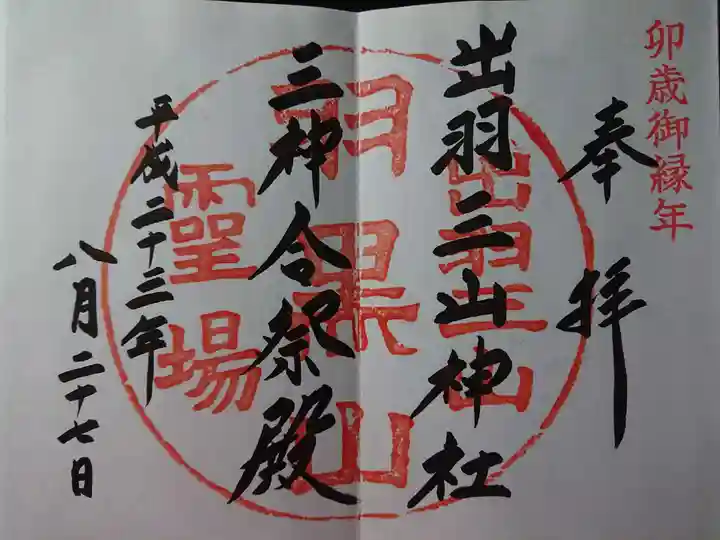 卯歳御縁年
奉拝
出羽三山神社
三神合祀祭殿
平成二十三年
八月二十七日
出羽三山
羽黒山
霊場